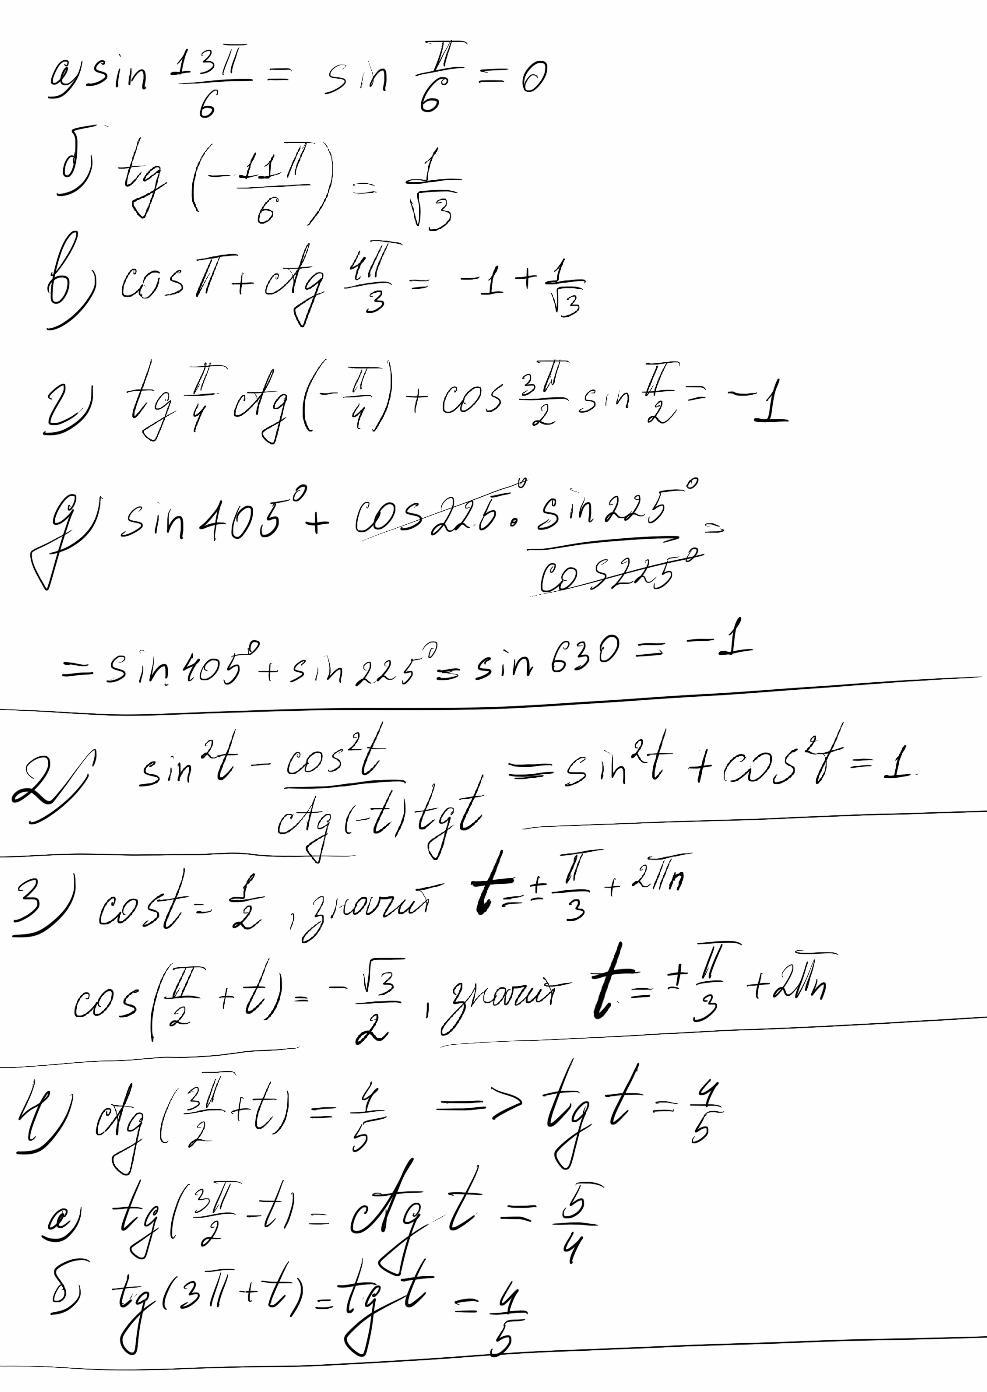 а) sin 13π/6 = sin π/6 = 0
б) tg (-11π/6) = 1/√3
в) cos π + ctg 4π/3 = -1 + 1/√3
г) tg π/4 ctg (-π/4) + cos 3π/2 sin π/2 = -1
д) sin 405° + cos 225° · sin 225°/cos 225° =
= sin 405° + sin 225° = sin 630 = -1
2) sin²t - cos²t/ctg (-t) tg t = sin²t + cos²t = 1
3) cos t = 1/2, значит t = ± π/3 + 2πn
cos (π/2 + t) = -√3/2, значит t = ± π/3 + 2πn
4) ctg (3π/2 + t) = 4/5 => tg t = 4/5
а) tg (3π/2 - t) = ctg t = 5/4
б) tg (3π + t) = tg t = 4/5